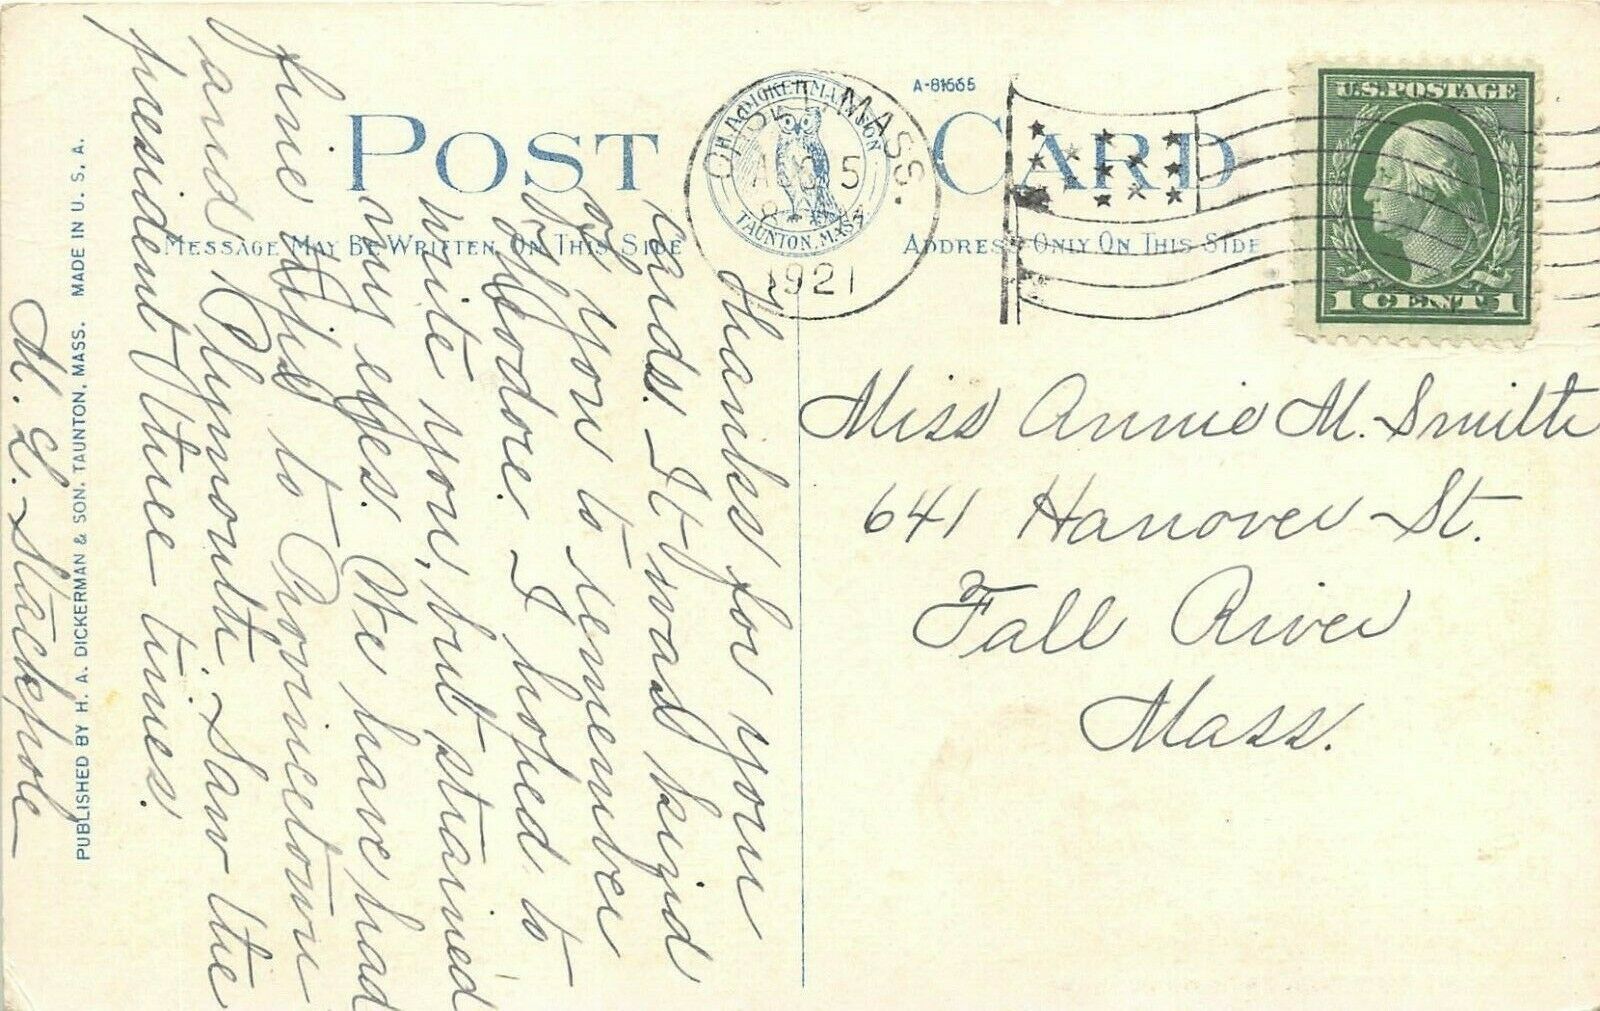 POST CARD
A-81665
MESSAGE MAY BE WRITTEN ON THIS SIDE
ADDRESS ONLY ON THIS SIDE
H. A. DICKERMAN & SON
TAUNTON, MASS.
MASS.
AUG 5
1921
U.S. POSTAGE
1 CENT 1
Thanks for your
cards. It was kind
of you to remember
Theodore. I hoped to
write you, but strained
my eyes. We have had
fine trips to Provincetown
and Plymouth. Saw the
president three times.
M. E. Stackpole
PUBLISHED BY H. A. DICKERMAN & SON, TAUNTON, MASS. MADE IN U. S. A.
Miss Annie M. Smith
641 Hanover St.
Fall River
Mass.